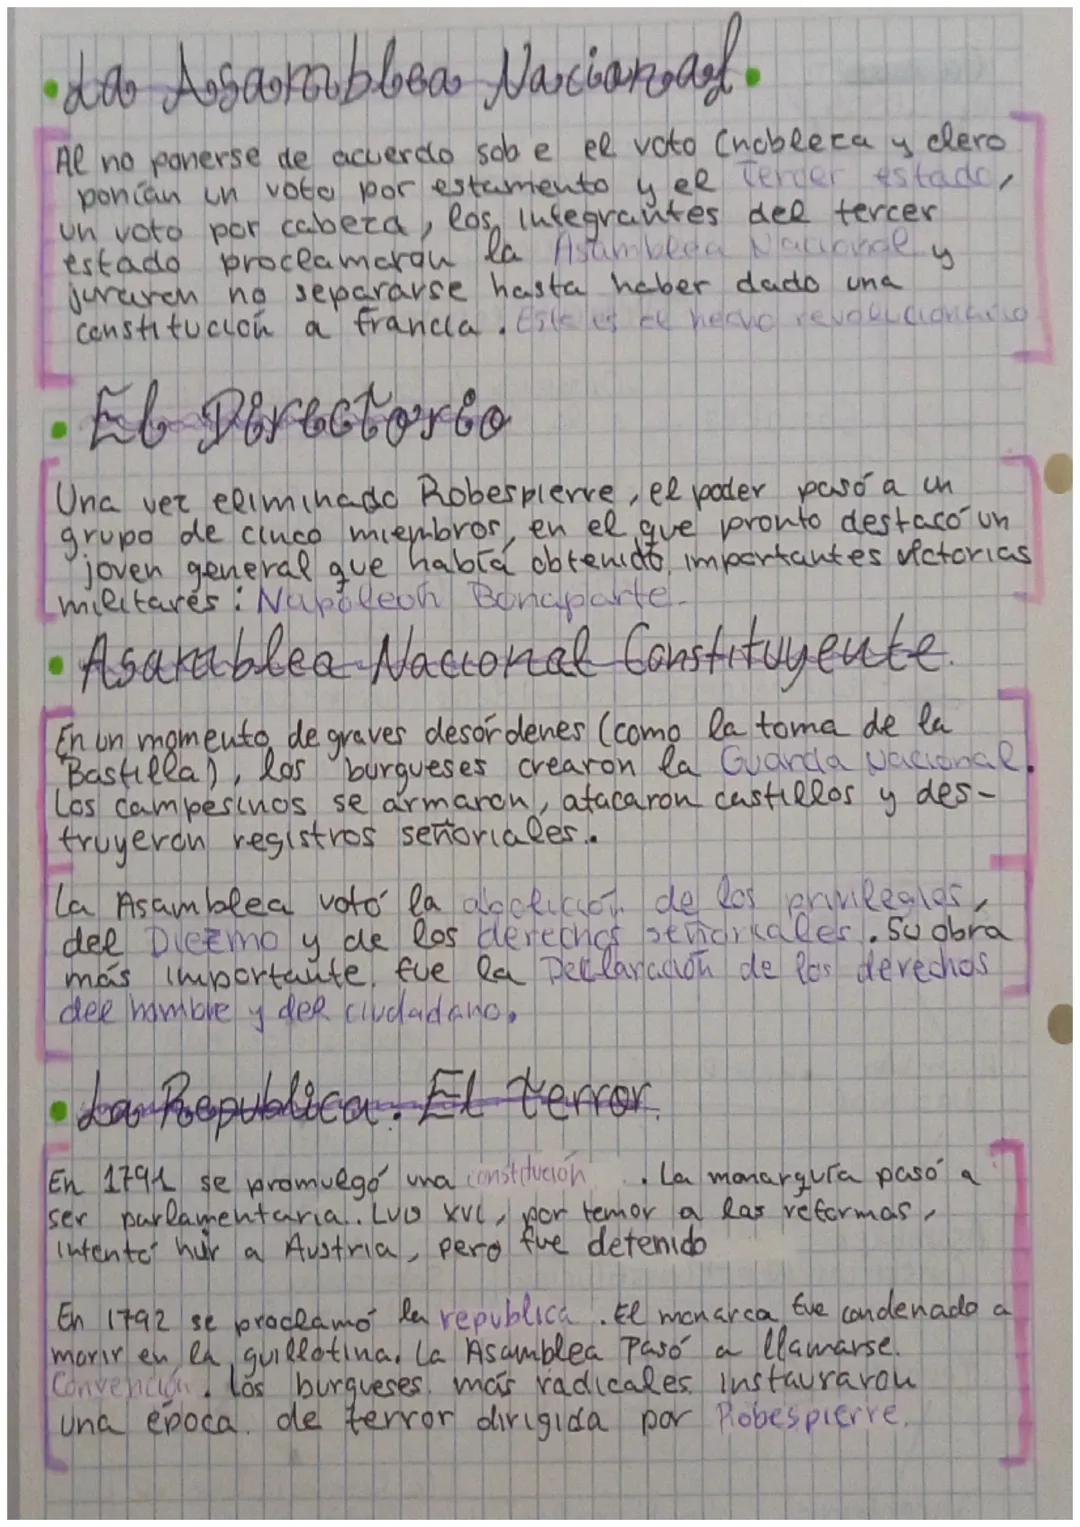 • La Asamblea Nacional •
Al no ponerse de acuerdo sob e el voto (nobleza y clero
ponían un voto por estamento y el Tercer estado,
un voto por cabeza, los integrantes del tercer
estado proclamaron la Asamblea Nacional y
juraron no separarse hasta haber dado una
constitución a francia. Este es el hecho revolucionario
• El Directorio
Una vez eliminado Robespierre, el poder pasó a un
grupo de cinco miembros, en el que pronto destacó un
joven general que había obtenido importantes victorias
militares: Napoleón Bonaparte.
• Asamblea Nacional Constituyente.
En un momento de graves desórdenes (como la toma de la
Bastilla), los burgueses crearon la Guarda Nacional.
Los campesinos se armaron, atacaron castillos y des-
truyeron registros señoriales.
La Asamblea votó la abolición de los privilegios,
del Diezmo y de los derechos señoriales. Su obra
más importante fue la Declaración de los derechos
del hombre y del ciudadano.
• La Republica. El terror.
En 1791 se promulgó una constitución . La monarquía pasó a
ser parlamentaria.. Luis XVI, por temor a las reformas,
intentó huir a Austria, pero fue detenido
En 1792 se proclamó la republica. El monarca fue condenado a
morir en la guillotina. La Asamblea Pasó a llamarse.
Convención. los burgueses más radicales instauraron
una época de terror dirigida por Robespierre.